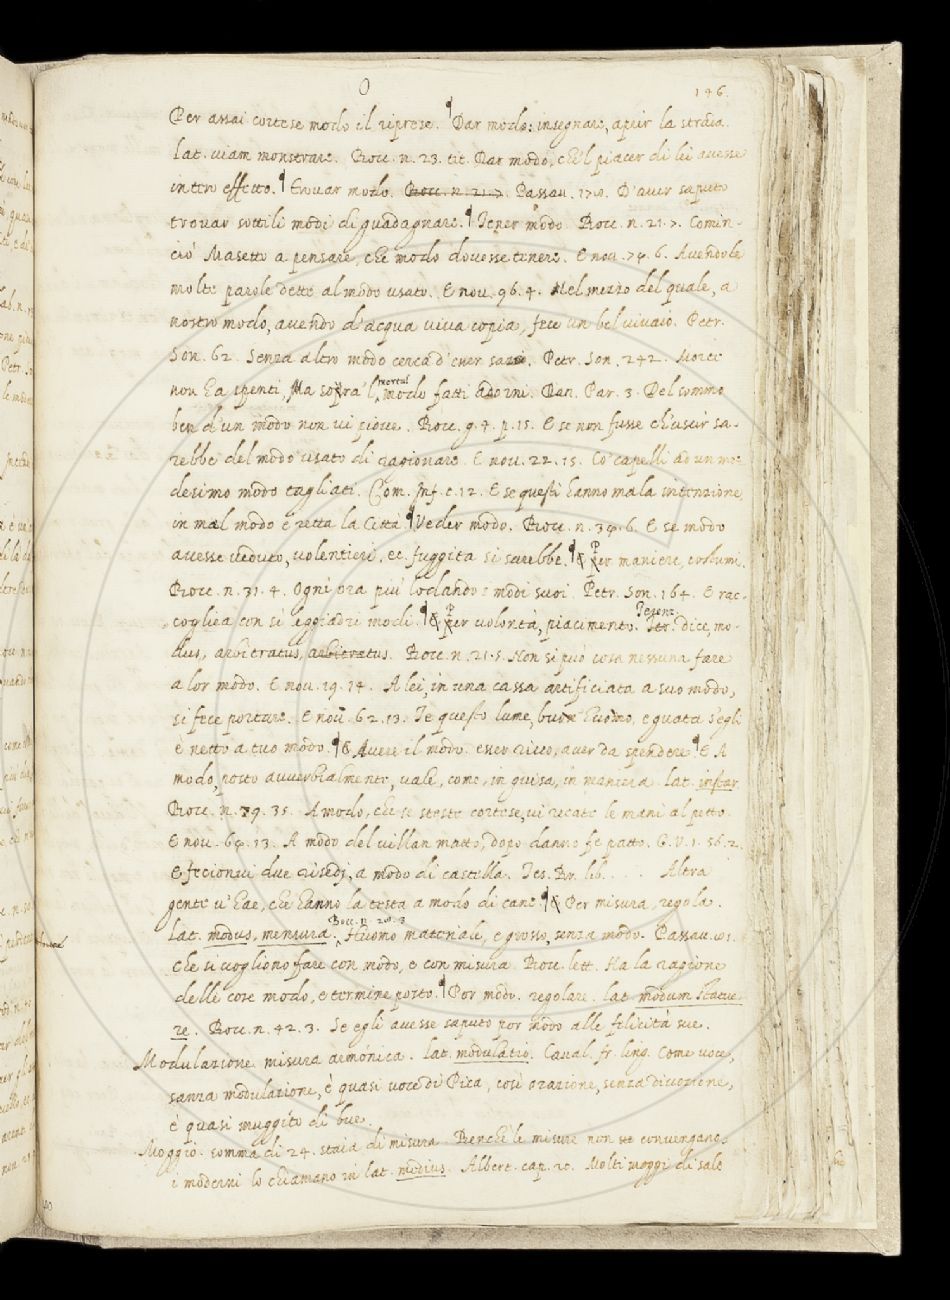 O 146.
Per assai cortese modo il riprese. ¶ Dar modo: insegnare, aprir la strada.
Lat. viam monstrare. Bocc. n. 23. tit. Dar modo, che'l piacer di lei avesse
intero effetto. ¶ Trovar modo. Bocc. n. 21.7. Passav. D'aver saputo
trovar sottili modi di guadagnare. ¶ Tener modo Bocc. n. 21.7. Comin-
ciò Masetto a pensare, che modo dovesse tenere. E nov. 79. 6. Avendole
molte parole dette al modo usato. E nov. 96. 4. Nel mezzo del quale, a
nostro modo, avendo d'acqua viva copia, fece un bel vivaio. Petr.
Son. 62. Senza altro modo cerca d'esser sazio. Petr. Son. 242. Morte
non ha spenti, Ma sopra'l mortal modo fatti adorni. Dan. Par. 3. Del sommo
ben d'un modo non vi piove. Bocc. g. 4. p. 15. E se non fusse ch'uscir sa-
rebbe del modo usato di ragionare. E nov. 22. 15. Co' capelli ad un me-
desimo modo tagliati. Com. Inf. c. 12. E se questi hanno mala intenzione,
in mal modo è retta la Città ¶ Veder modo. Bocc. n. 39. 6. E se modo
avesse veduto, volentieri, ec. fuggita si sarebbe. ¶ E Per maniere, costumi.
Bocc. n. 31. 4. Ogni ora più lodando i modi suoi. Petr. Son. 164. E rac-
coglica con sì leggiadri modi. ¶ E Per volontà, piacimento. Ter. Terenz. dice, mo-
dus, arbitratus, arbitratus. Bocc. n. 21. 5. Non si può cosa nessuna fare
a lor modo. E nov. 19. 14. A lei, in una cassa artificiata a suo modo,
si fece portare. E nov. 62. 13. Te questo lume, buon huomo, e guata s'egli
è netto a tuo modo. ¶ E Avere il modo. esser ricco, aver da spendere ¶ E A
modo, posto avverbialmente, vale, come, in guisa, in maniera. Lat. instar.
Bocc. n. 79. 35. A modo, che se steste cortese, vi recate le mani al petto.
E nov. 69. 13. A modo del villan matto, dopo danno fe patto. G. V. 1. 56. 2.
E fecionvi due risedj, a modo di castella. Tes. Br. lib. . . . . Altra
gente v'hae, che hanno la testa a modo di cane ¶ E Per misura, regola.
Lat. modus, mensura. Bocc. n. 20. 3. Huomo materiale, e grosso, senza modo. Passav.
Che si vogliono fare con modo, e con misura Bocc. lett. Ha la ragione
delle cose modo, e termine posto. ¶ Por modo. regolare. lat. modum statue-
re. Bocc. n. 42. 3. Se egli avesse saputo por modo alle felicità sue.
Modulazione. misura armónica. Lat. modulatio. Caval. fr. ling. Come voce,
sanza modulazione, è quasi voce di Pica, così orazione, senza divozione,
è quasi muggito di bue.
Moggio. somma di 24. staia di misura Benchè le misure non se convengano.
i moderni lo chiamano in lat. modius. Albert. cap. 20. Molti moggi di sale